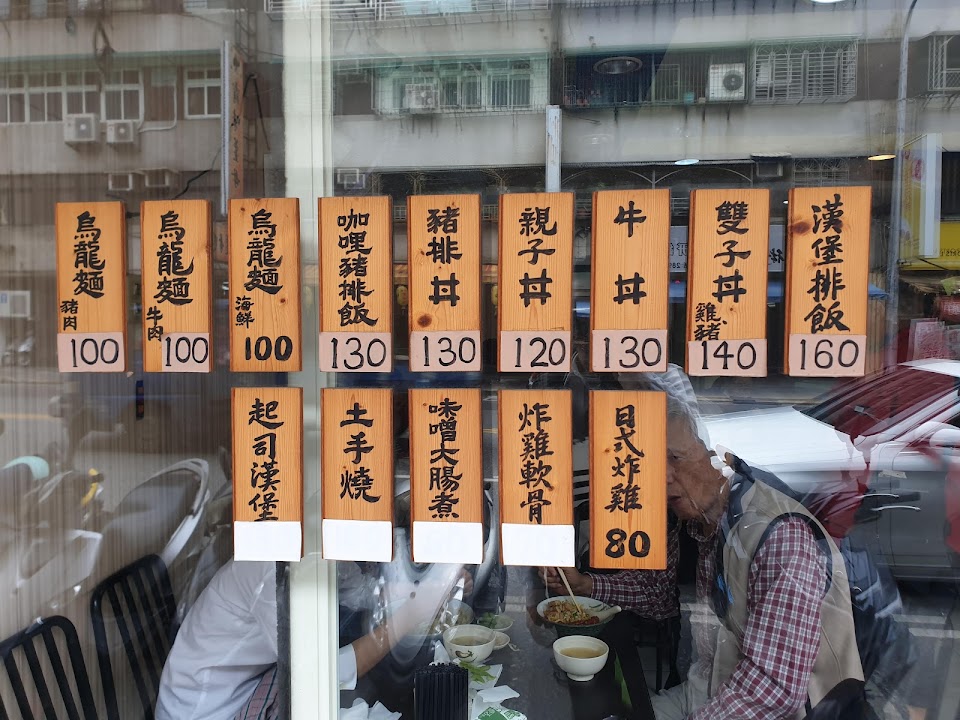 烏龍麵
豬肉
100
烏龍麵
牛肉
100
烏龍麵
海鮮
100
咖哩豬排飯
130
豬排丼
130
親子丼
120
牛丼
130
雙子丼
雞、豬
140
漢堡排飯
160
起司漢堡
土手燒
味噌大腸煮
炸雞軟骨
日式炸雞
80